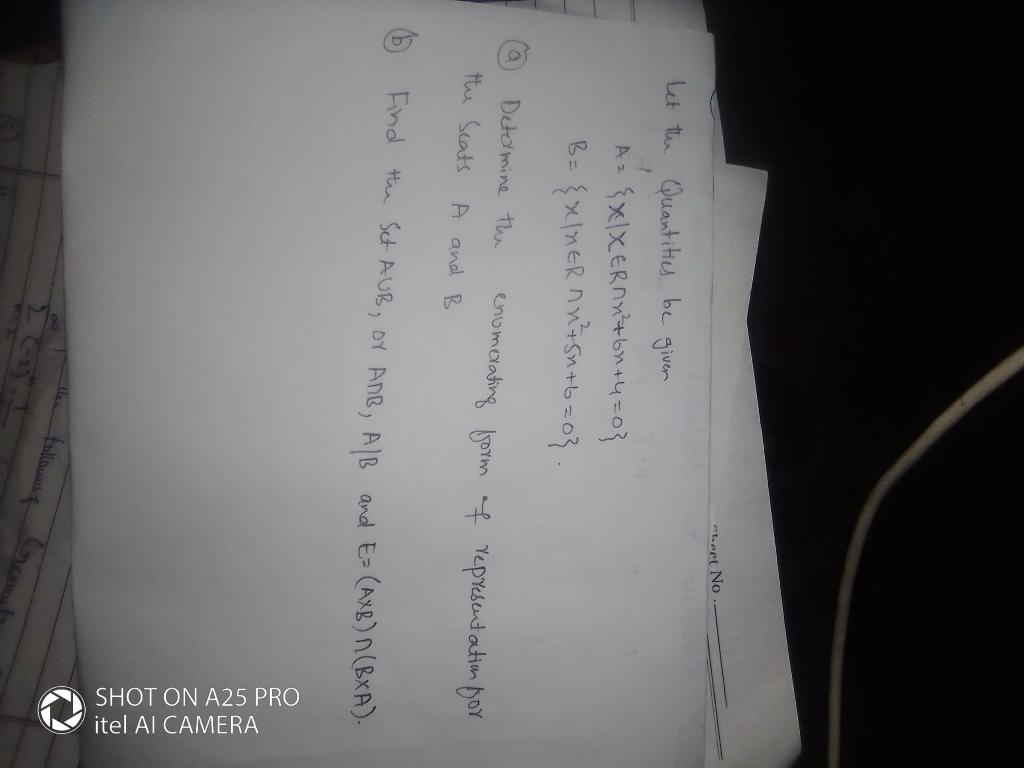 Let the Quantities be given
A = {x|x ∈ R ∩ x²+6x+4=0}
B = {x|x ∈ R ∩ x²+5x+6=0}.
ⓐ Determine the enumerating form of representation for
the Seats A and B
ⓑ Find the Set A∪B, or A∩B, A|B and E = (A×B)∩(B×A).
No.
the following
SHOT ON A25 PRO
itel AI CAMERA